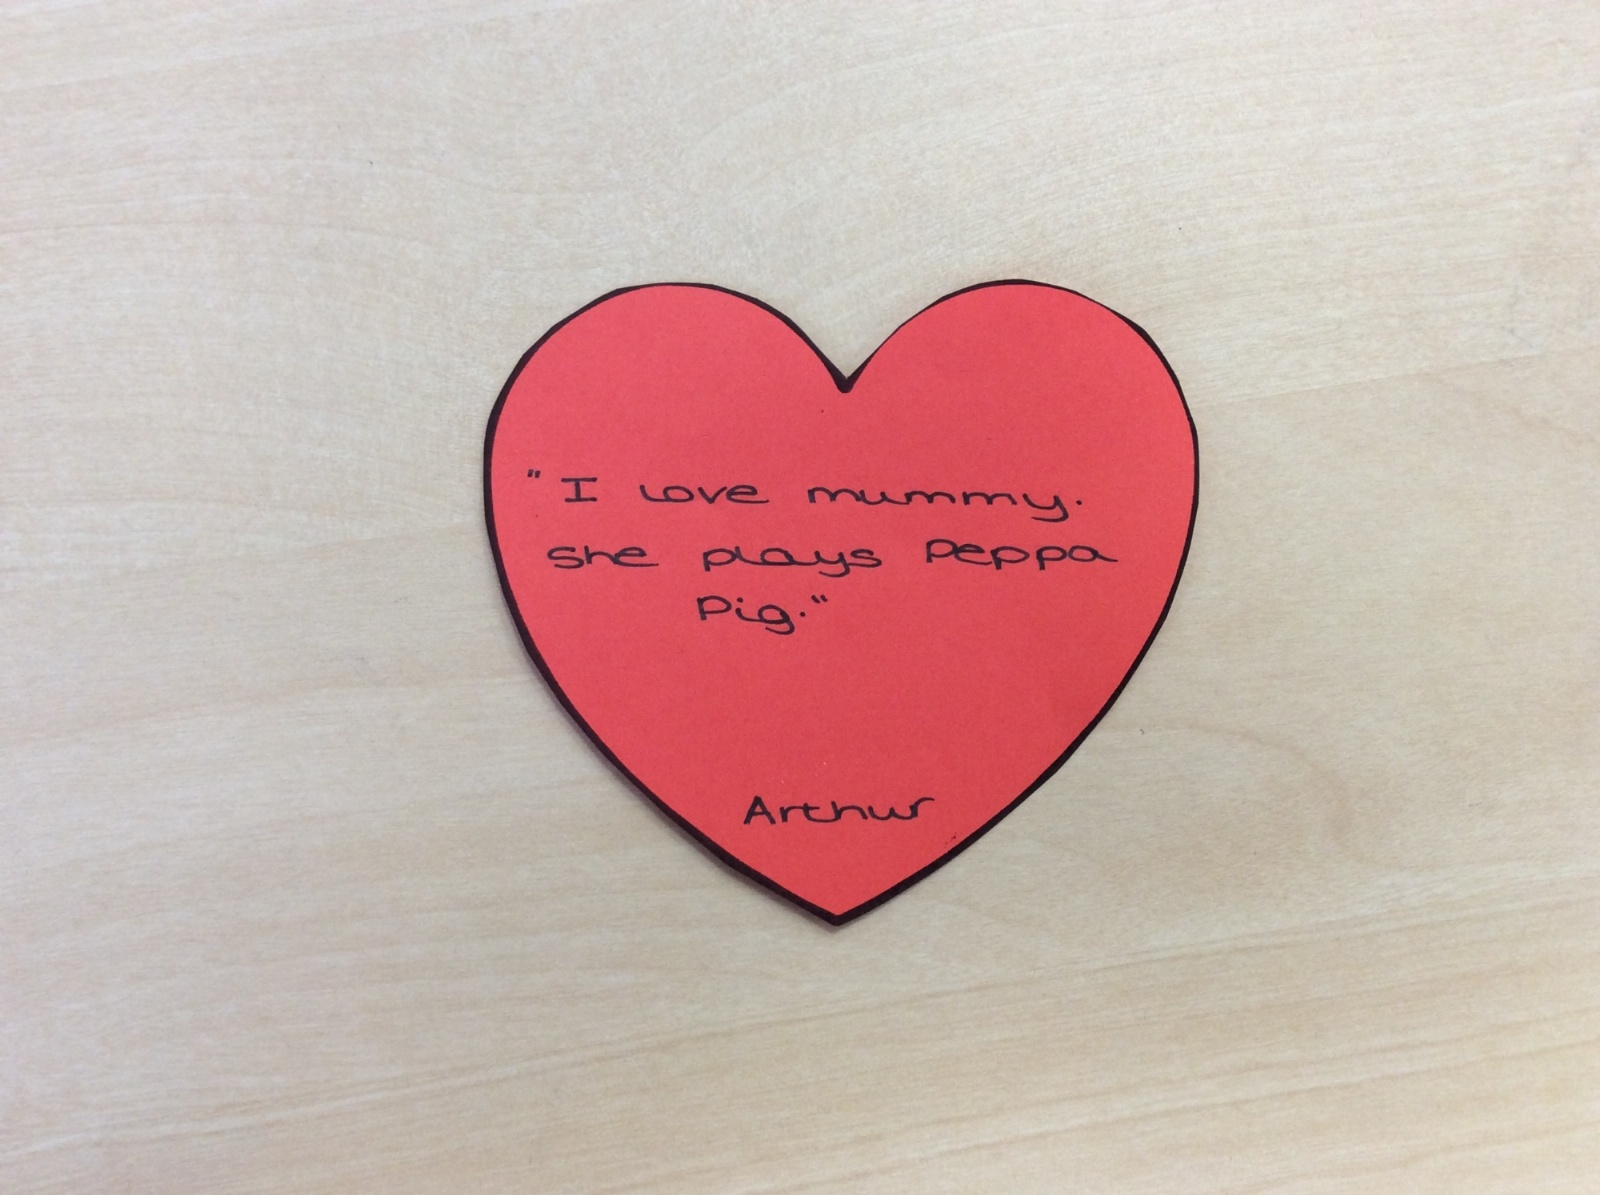 "I love mummy.
She plays Peppa
Pig."
Arthur